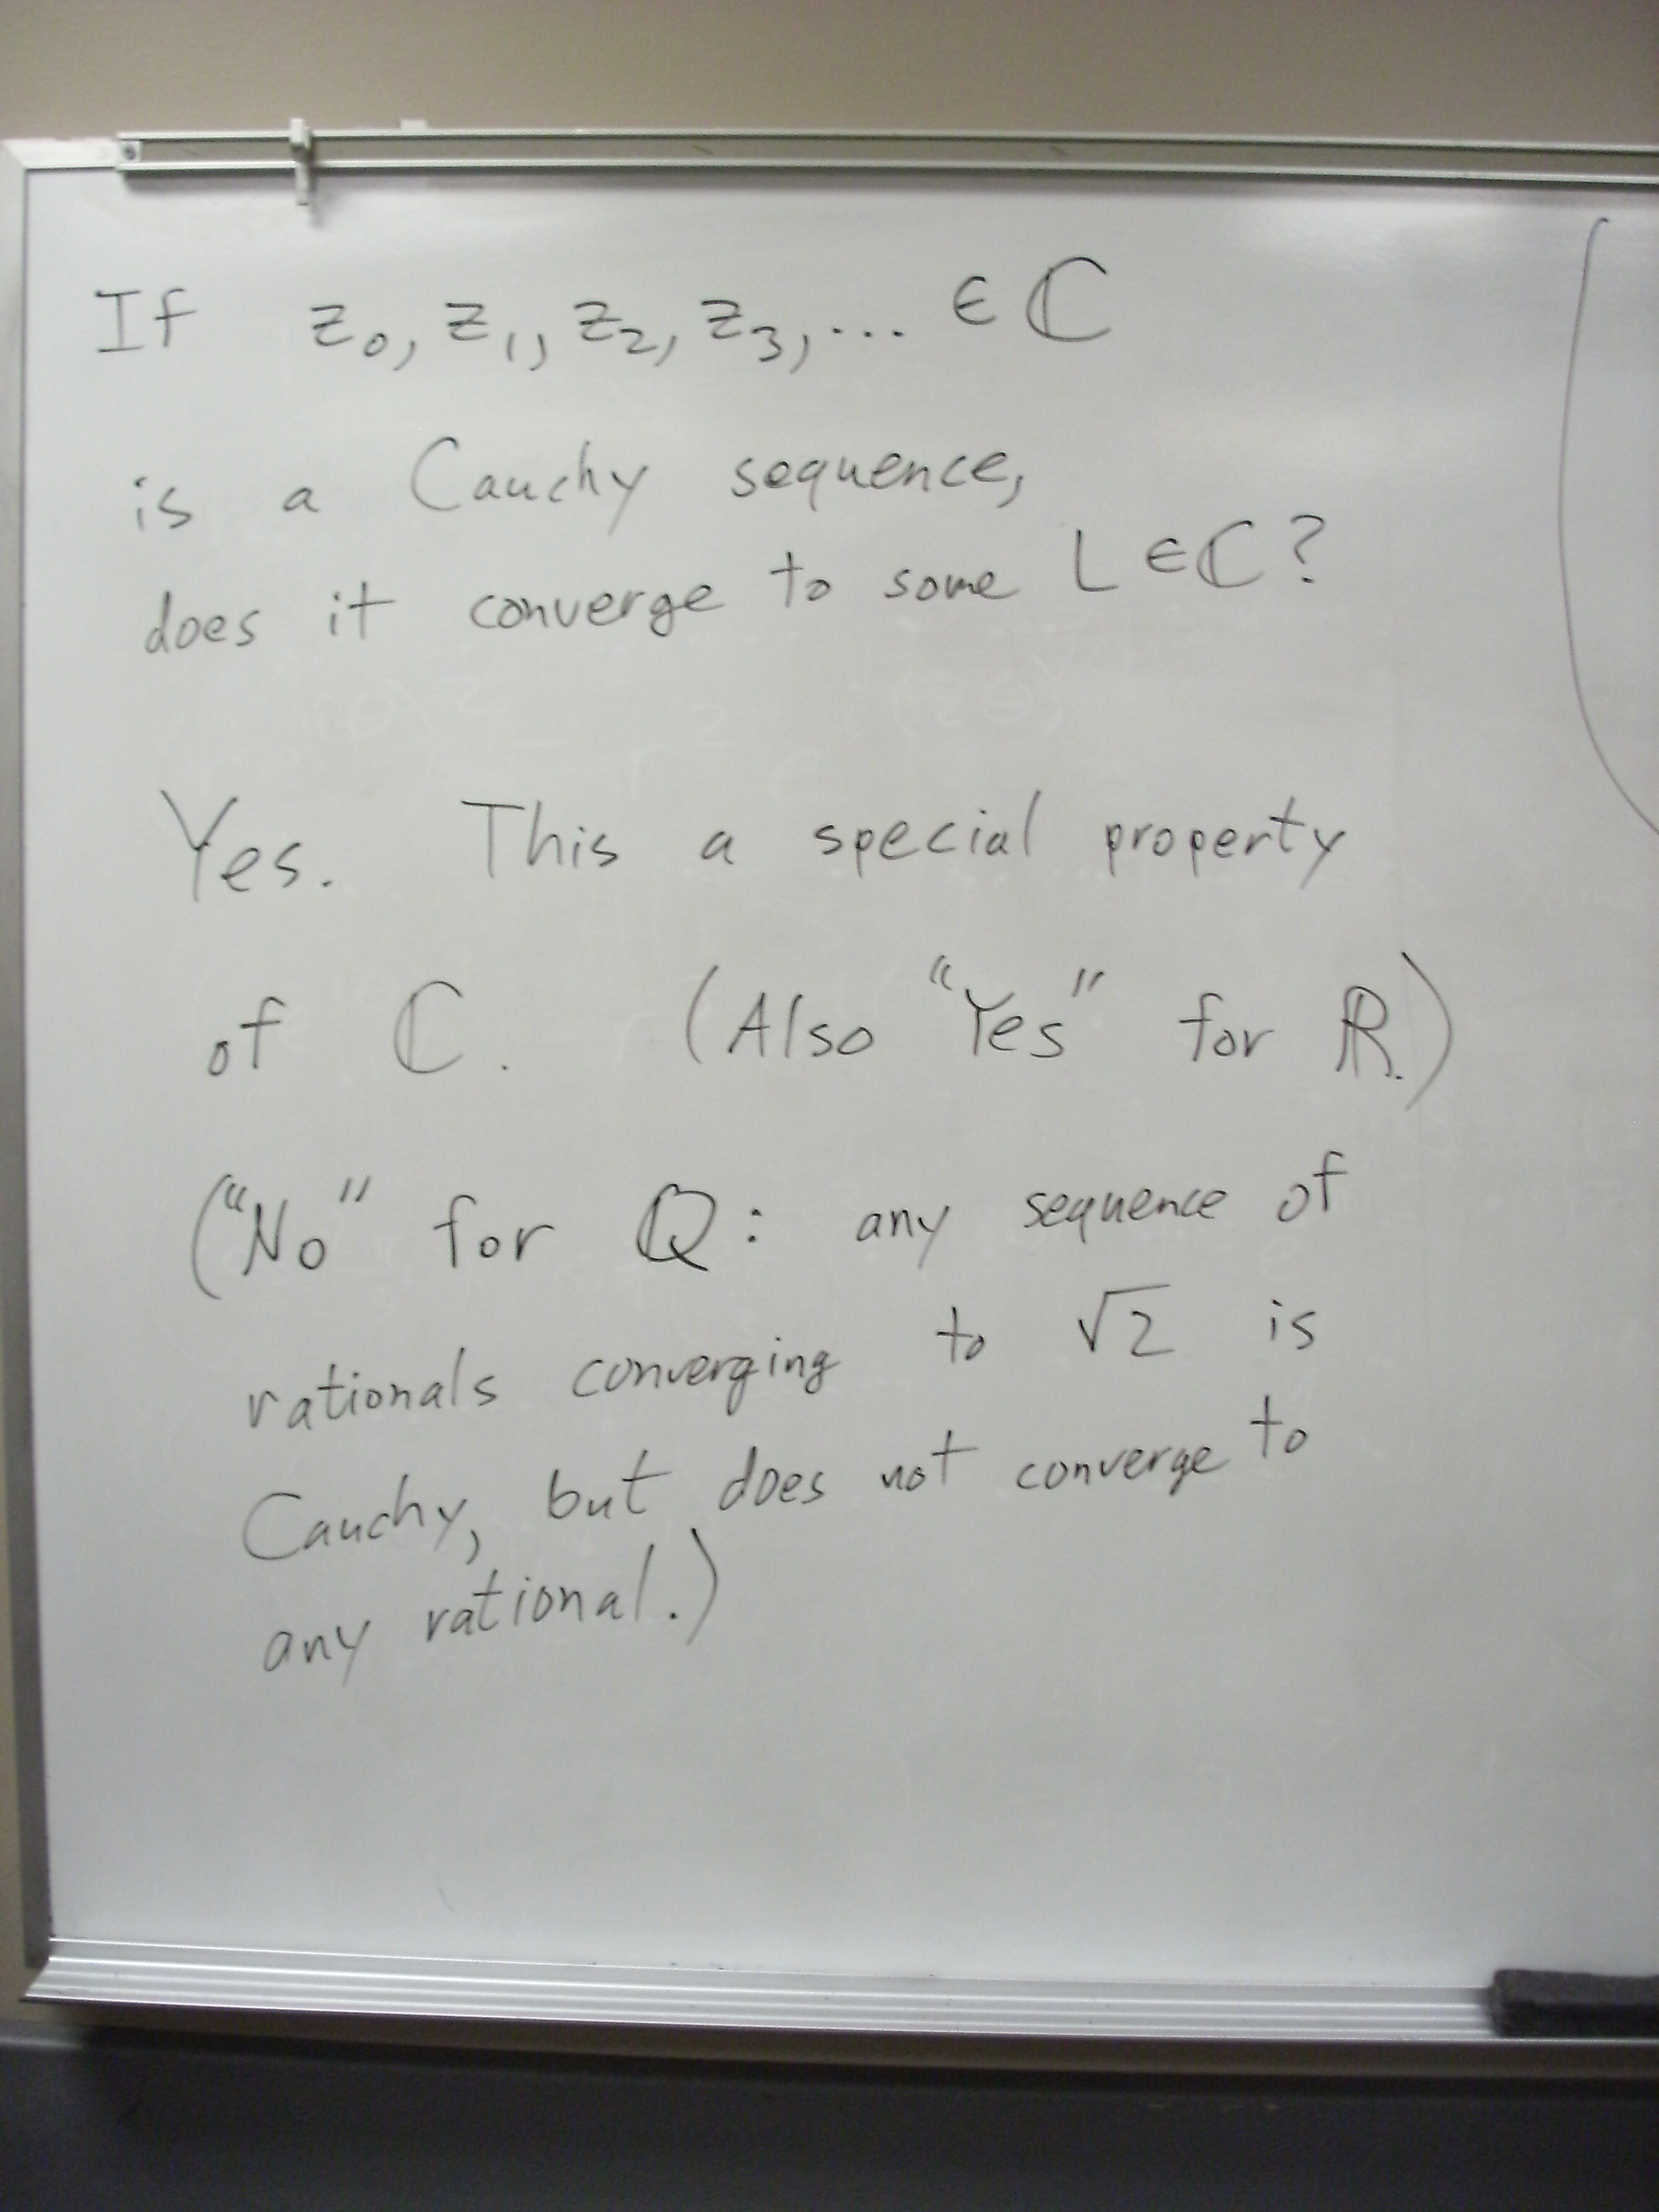 If z₀, z₁, z₂, z₃, ... ∈ ℂ
is a Cauchy sequence,
does it converge to some L ∈ ℂ?
Yes. This a special property
of ℂ. (Also "Yes" for ℝ.)
("No" for ℚ: any sequence of
rationals converging to √2 is
Cauchy, but does not converge to
any rational.)